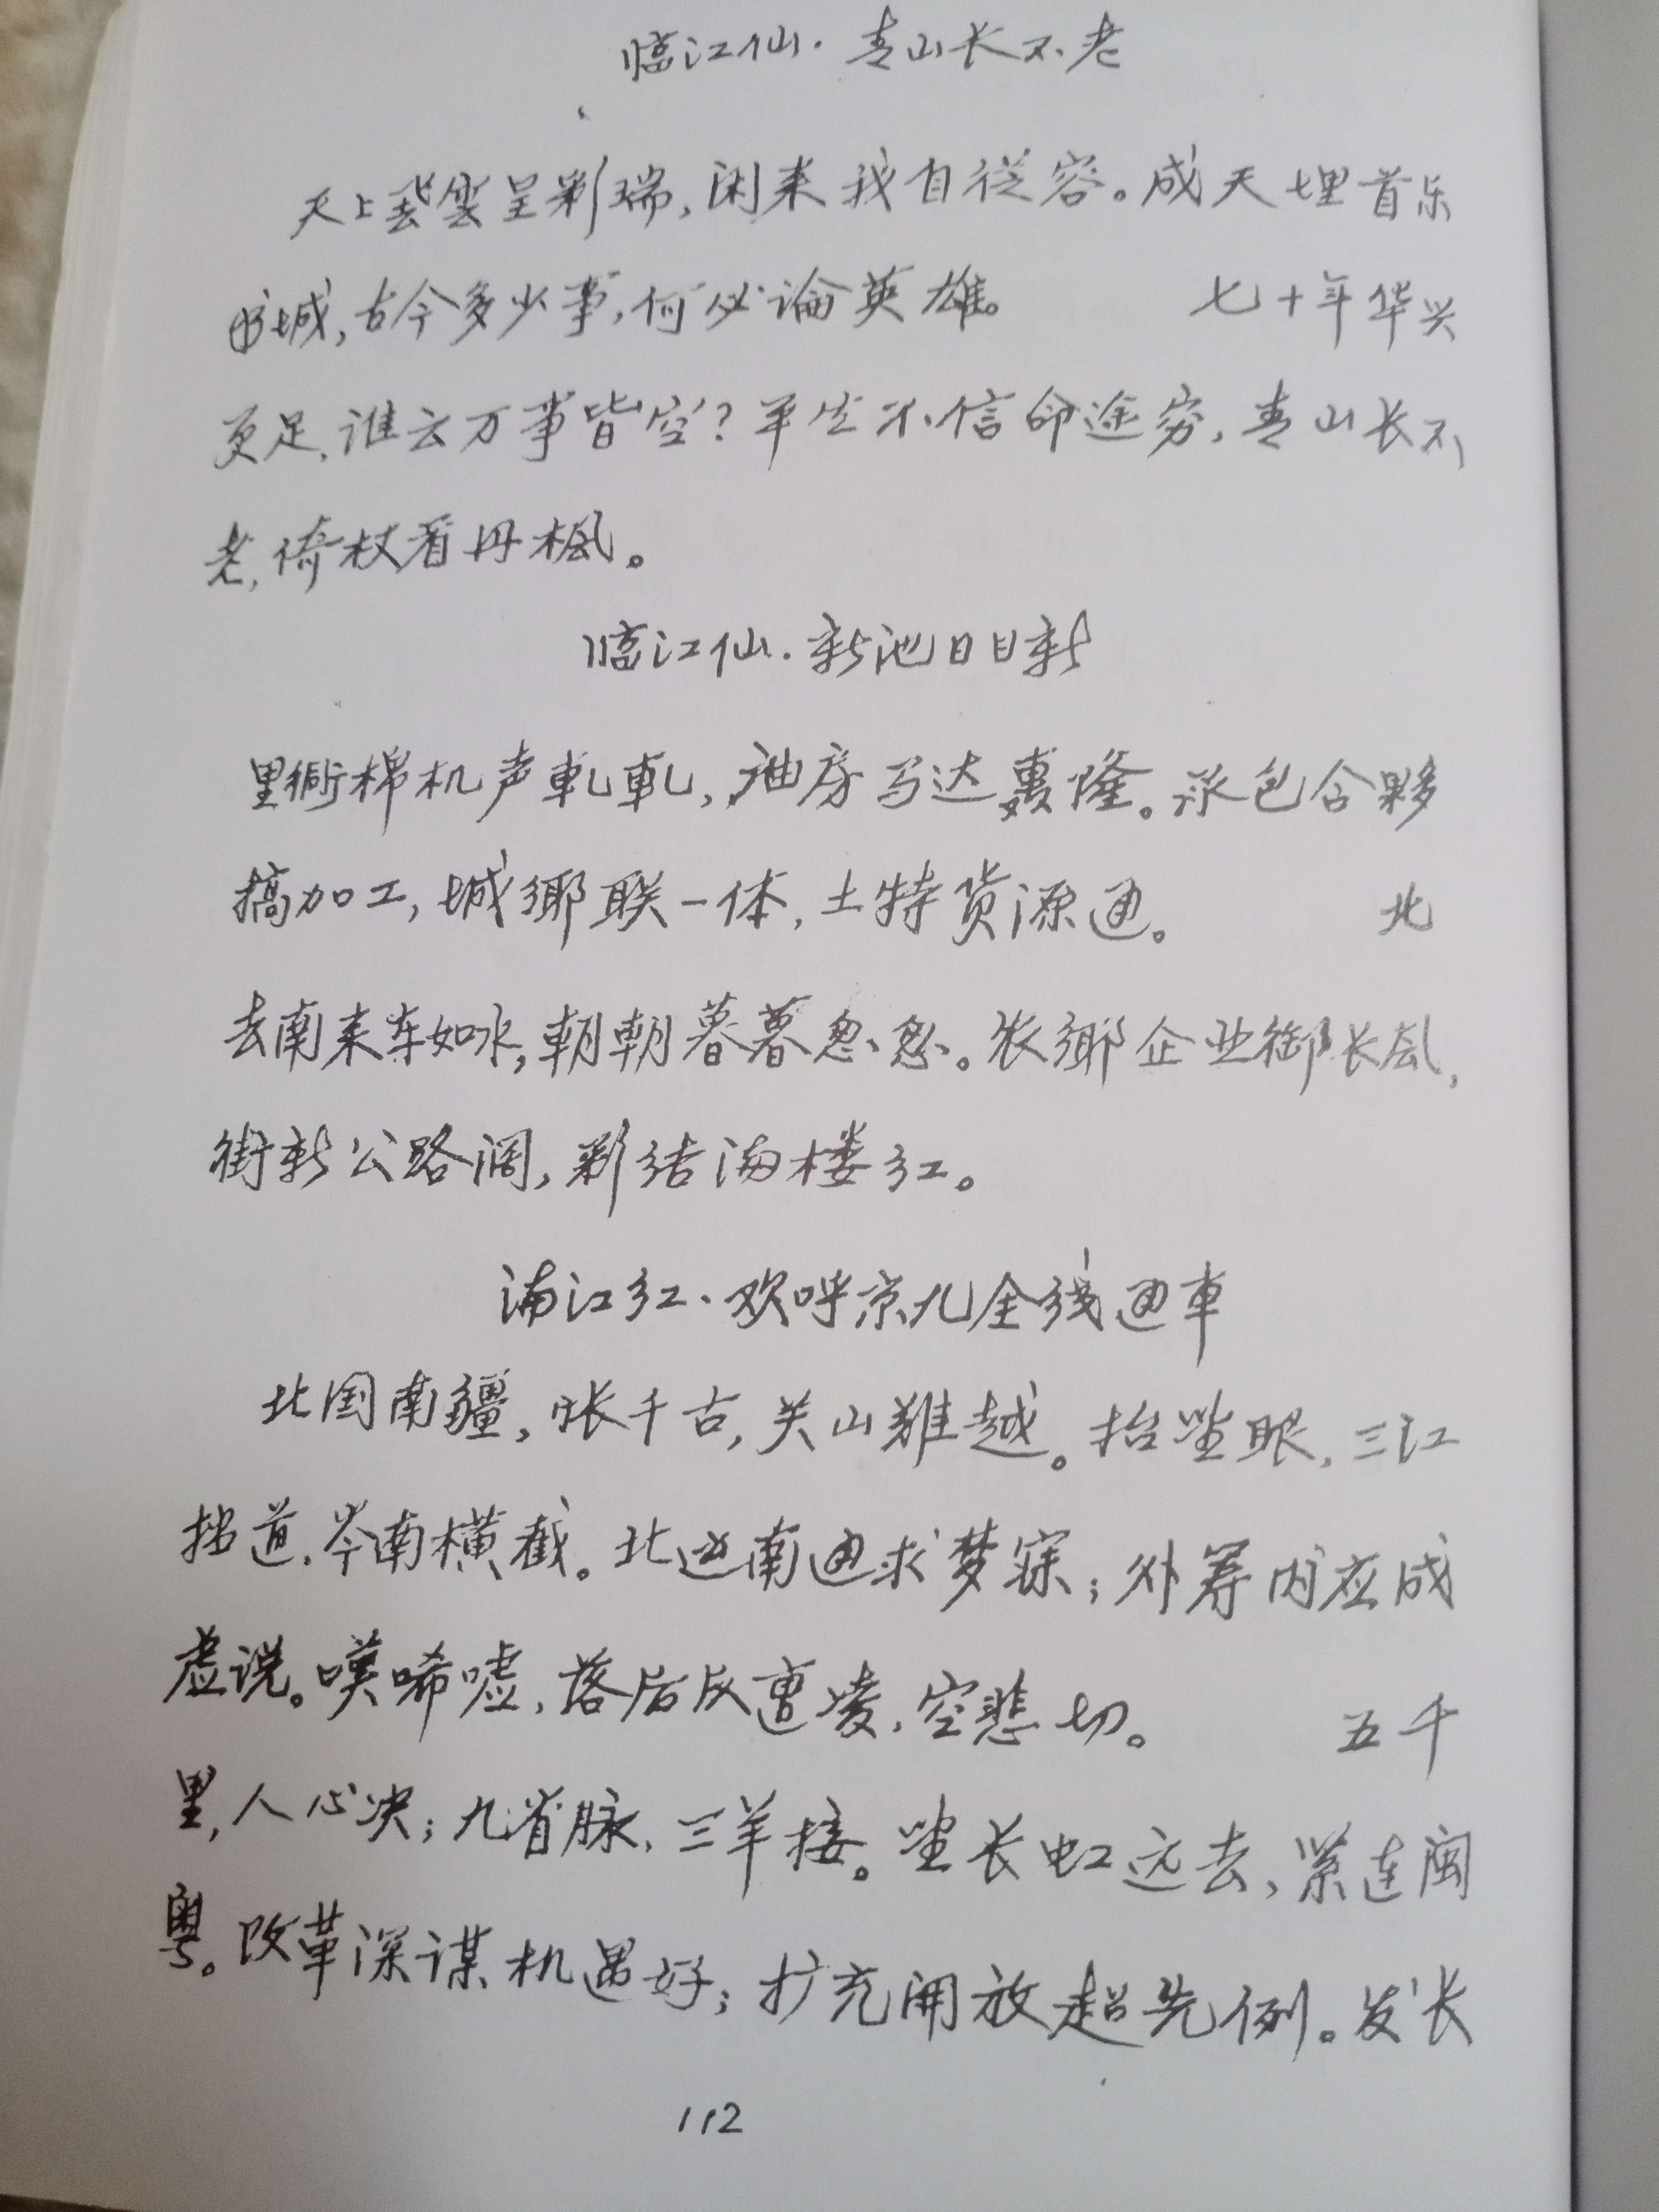 临江仙·青山长不老
天上云呈彩瑞，闲来我自从容。成天埋首乐
书城，古今多少事，何必论英雄。 七十年华兴
更足，谁云万事皆空？平生不信命途穷，青山长不
老，倚杖看丹枫。
临江仙·新池日日新
里衖棉机声軋軋，油房马达轰隆。承包合夥
搞加工，城鄉联一体，土特货源通。 北
去南来车如水，朝朝暮暮忽忽。农鄉企业御长风，
街新公路阔，彩结海楼红。
满江红·欢呼京九全线通車
北国南疆，怅千古，关山难越。抬望眼，三江
挡道，岑南横截。北运南通求梦寐；外筹内应成
虚说。嘆唏嘘，落后反遭凌，空悲切。 五千
里，人心决；九省脉，三羊接。望长虹远去，紧连闽
粤。改革深谋机遇好；扩充開放超先例。发长
112